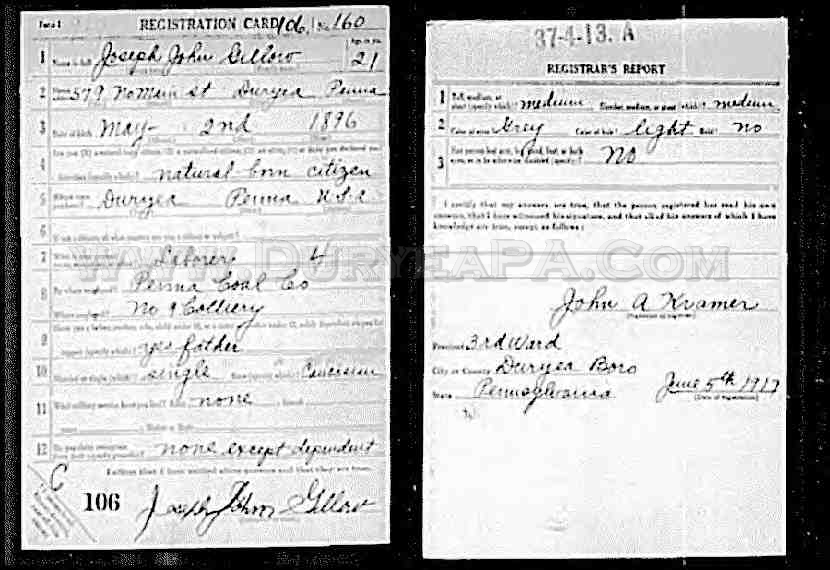 Form 1
REGISTRATION CARD
No. 160
1 Name in full Joseph John Gillow Age, in yrs. 21
2 Home address 579 No Main St Duryea Penna
3 Date of birth May 2nd 1896
4 Are you (1) a natural-born citizen, (2) a naturalized citizen, (3) an alien, (4) or have you declared your
intention (specify which)? natural born citizen
5 Where were you born? Duryea Penna U.S.A
6 If not a citizen, of what country are you a citizen or subject?
7 Laborer 4
8 By whom employed? Penna Coal Co
Where employed? No 9 Colliery
9 Have you a father, mother, wife, child under 12, or a sister or brother under 12, solely dependent on you for
support (specify which)? yes father
10 Married or single (which)? single Race (specify which)? Caucasian
11 What military service have you had? Rank none
years Nation or State
12 Do you claim exemption from draft (specify grounds)? none except dependent
I affirm that I have verified above answers and that they are true.
C
106
Joseph John Gillow
37-4-13. A
REGISTRAR'S REPORT
1 Tall, medium, or short (specify which)? medium Slender, medium, or stout (which)? medium
2 Color of eyes? Grey Color of hair? light Bald? No
3 Has person lost arm, leg, hand, foot, or both
eyes, or is he otherwise disabled (specify)? No
I certify that my answers are true, that the person registered has read his own
answers, that I have witnessed his signature, and that all of his answers of which I have
knowledge are true, except as follows:
www.DuryeaPA.com
John A Kramer
(Signature of registrar)
Precinct 3rd Ward
City or County Duryea Boro
State Pennsylvania June 5th 1917
(Date of registration)